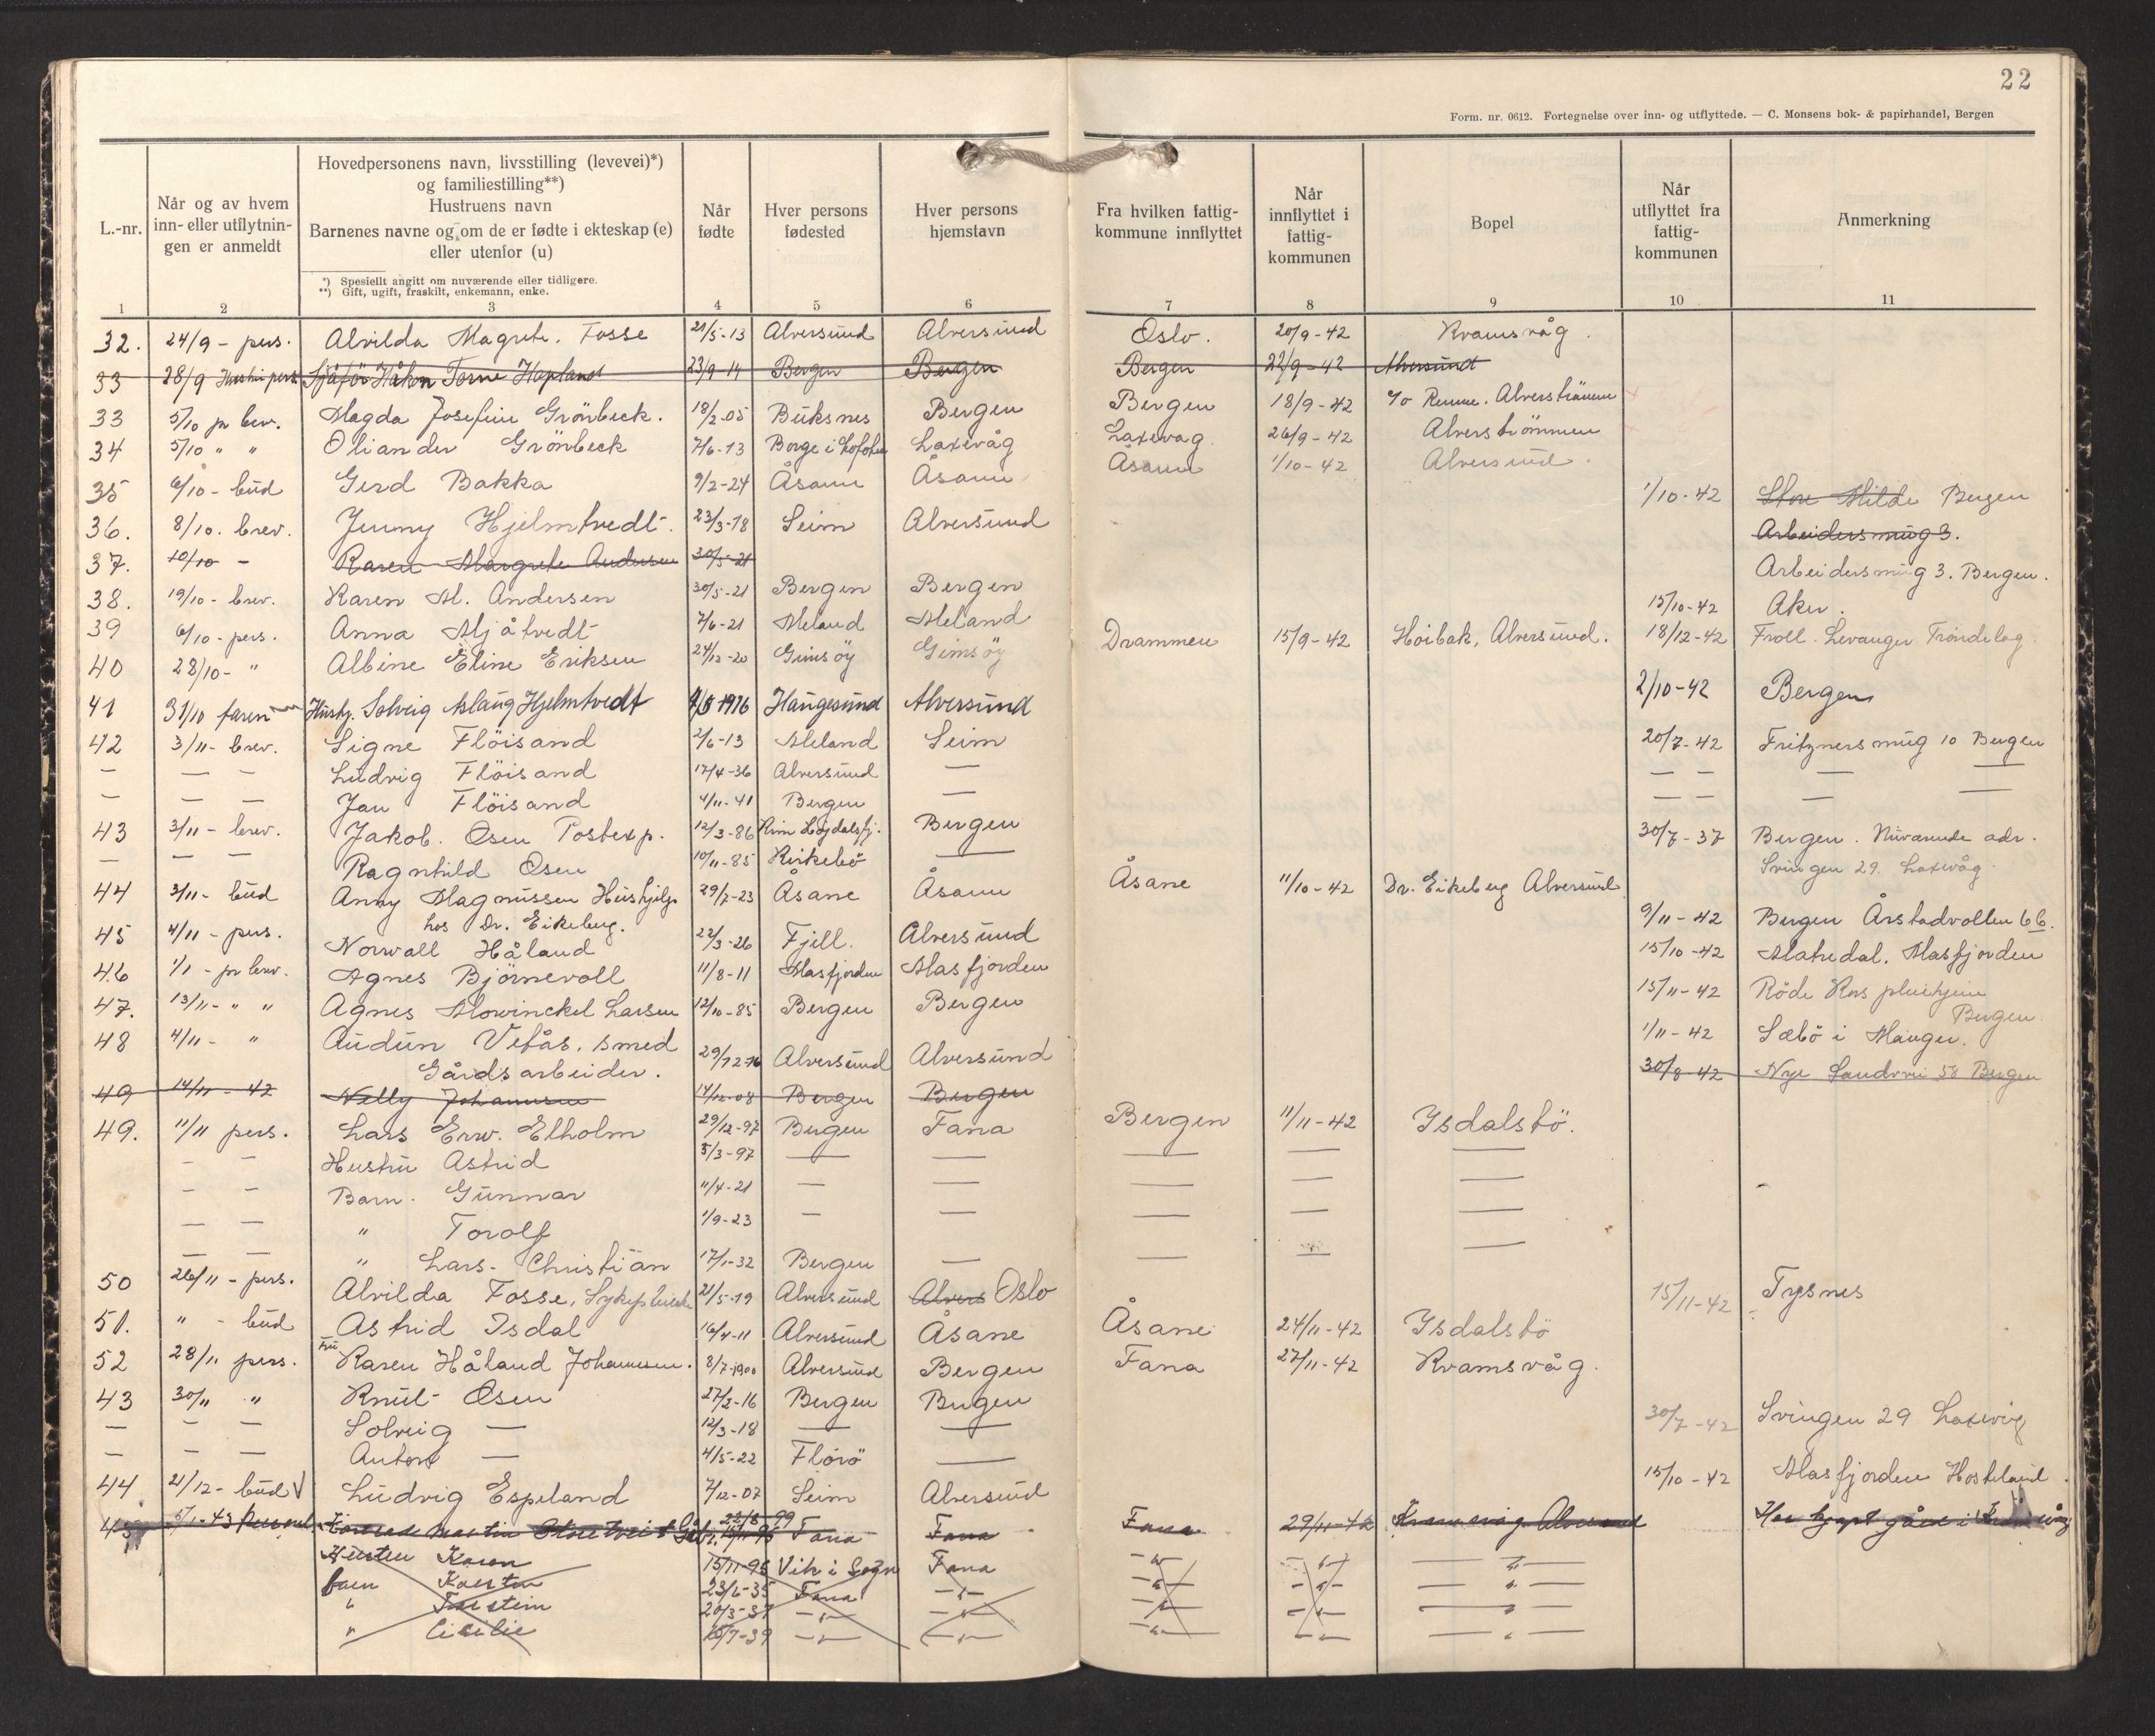 22
Form. nr. 0612. Fortegnelse over inn- og utflyttede. — C. Monsens bok- & papirhandel, Bergen
L.-nr.
Når og av hvem inn- eller utflytningen er anmeldt
Hovedpersonens navn, livsstilling (levevei)*)
og familiestilling**)
Hustruens navn
Barnenes navne og om de er fødte i ekteskap (e)
eller utenfor (u)
*) Spesiellt angitt om nuværende eller tidligere.
**) Gift, ugift, fraskilt, enkemann, enke.
Når fødte
Hver persons fødested
Hver persons hjemstavn
Fra hvilken fattigkommune innflyttet
Når innflyttet i fattigkommunen
Bopel
Når utflyttet fra fattigkommunen
Anmerkning
1 2 3 4 5 6 7 8 9 10 11
32. 24/9 - pers. Alvilda Magrete. Fosse 21/5-13 Alversund Alversund Oslo. 20/9-42 Kvamsvåg.
33 28/9 Hustru pers Sjåfør Håkon Torne Hopland 23/9-14 Bergen Bergen Bergen 22/9-42 Alversund
33 5/10 pr brev. Magda Josefine Grönbeck. 18/2-05 Buksnes Bergen Bergen 18/9-42 Alverströmmen
34 5/10 " " Oliander Grönbeck 7/6-13 Borge i Lofoten Laxevåg Laxevåg 26/9-42 Alverströmmen
35 6/10 - bud Gerd Bakka 9/2-24 Åsane Åsane Åsane 1/10-42 Alversund.
36. 8/10. brev. Jenny Hjelmtvedt. 23/3-18 Seim Alversund 1/10-42 Store Milde Bergen
37. 10/10 - Karen Margrete Andersen 30/5-21 Arbeidersmug 3.
38. 19/10 - brev. Karen M. Andersen 30/5-21 Bergen Bergen Arbeidersmug 3. Bergen.
39 6/10 - pers. Anna Mjåtvedt 7/6-21 Meland Meland 15/10-42 Aker.
40 28/10 - " Albine Eline Eriksen 24/12-20 Gimsöy Gimsöy Drammen 15/9-42 Hoibak, Alversund. 18/12-42 Levanger Tröndelag
41 31/10 faren Hushj. Solveig Aslaug Hjelmtvedt 1916 Haugesund Alversund 2/10-42 Bergen
42 3/11 - brev. Signe Flöisand 2/6-13 Meland Seim 20/7-42 Fritznersmug 10 Bergen
— — — Ludvig Flöisand 17/4-36 Alversund — — — — —
— — — Jan Flöisand 4/11-41 Bergen — — — — —
43 3/11 - brev. Jakob. Osen Postexp. 12/3-86 Bergen 30/7-37 Bergen. Nuværende adr.
— — — Ragnhild Osen 10/11-85 Kirkebö — Svingen 29. Laxevåg
44 3/11 - bud Anny Magnussen Hushjelp 29/7-23 Åsane Åsane Åsane 11/10-42 Dr. Eikeberg Alversund
hos Dr. Eikeberg.
45 4/11 - pers. Norwall Håland 22/3-26 Fjell. Alversund 9/11-42 Bergen Årstadvollen 6 6.
46 1/1 - pr brev. Agnes Björnevoll 11/8-11 Masfjorden Masfjorden 15/10-42 Matredal. Masfjorden
47. 13/11 - " " Agnes Mowinckel Larsen 12/10-85 Bergen Bergen 15/11-42 Röde Kors pleiehjem
Bergen.
48 4/11 - " Audun Vetås. smed 29/12-76 Alversund Alversund 1/11-42 Sæbö i Manger.
Gårdsarbeider.
49 14/11 - 42 Nelly Johannessen 14/12-08 Bergen Bergen 30/8-42 Nye Sandvei 58 Bergen
49. 11/11 pers. Lars Erw. Elholm 29/12-97 Bergen Fana Bergen 11/11-42 Isdalstö.
— — Hustru Astrid 5/3-97 — — — — —
— — Barn. Gunnar 11/4-21 — — — — —
— — " Torolf 1/9-23 — — — — —
— — " Lars-Christian 17/1-32 Bergen — — — —
50 26/11 - pers. Alvilda Fosse, Sykepleierske 21/5-19 Alversund Alvers Oslo 15/11-42 Tysnes
51. " - bud Astrid Isdal 16/4-11 Alversund Åsane Åsane 24/11-42 Isdalstö
52 28/11 pers. fru Karen Håland Johannessen. 8/7-1900 Alversund Bergen Fana 27/11-42 Kvamsvåg.
43 30/11 " Knut Osen 27/2-16 Bergen Bergen 30/7-42 Svingen 29 Laxevåg
— — — Solveig — 12/3-18 — —
— — — Anton — 4/5-22 Florö —
44 21/12 - bud Ludvig Espeland 7/12-07 Seim Alversund 15/10-42 Masfjorden Hosteland.
45 5/1-43 Personl. Martin 22/8-99 Fana Fana Fana 29/11-42 Kvamsvåg Alversund Har kjøpt gård i
Hustru Karen 15/11-95 Vik i Sogn Fana — " — — " — — " —
barn Karsten 23/6-35 Fana — " — — " — — " — — " —
" Torstein 20/3-37 — " — — " — — " — — " — — " —
" Cicilie /7-39 — " — — " — — " — — " — — " —